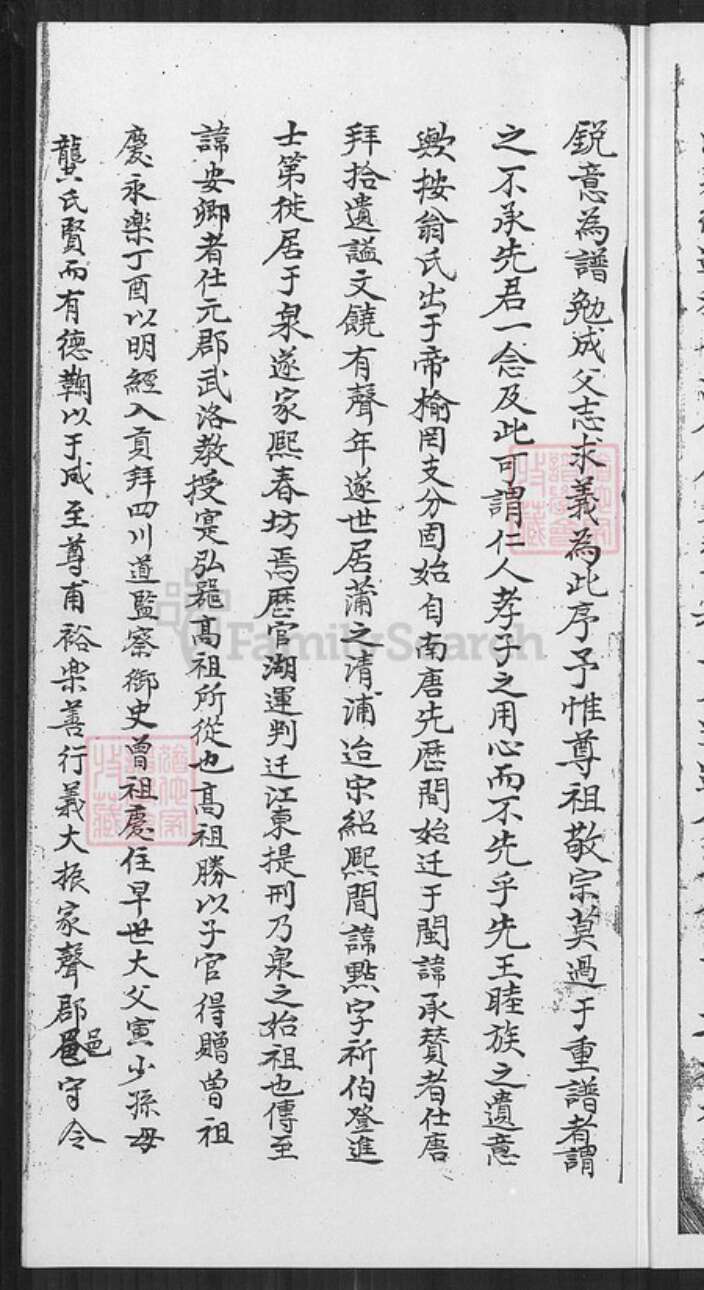 銳意為譜勉成父志求義為此序予惟尊祖敬宗莫過于重譜者謂
之不承先君一念及此可謂仁人孝子之用心而不先乎先王睦族之遺意
歟按翁氏出于帝榆罔支分固始自南唐先歷間始迁于閩諱承贊者仕唐
拜拾遺謚文饒有聲年遂世居蒲之清浦迨宋紹熙間諱點字祈伯登進
士第徙居于泉遂家熙春坊焉歷官湖運判迁江東提刑乃泉之始祖也傳至
諱安卿者仕元郡武洛教授寔弘巍高祖所從也高祖勝以子官得贈曾祖
慶永楽丁酉以明經入貢拜四川道監察御史曾祖慶任早世大父寅少孫母
龔氏賢而有德鞠以于成至尊甫裕楽善行義大振家聲郡邑守令
FamilySearch